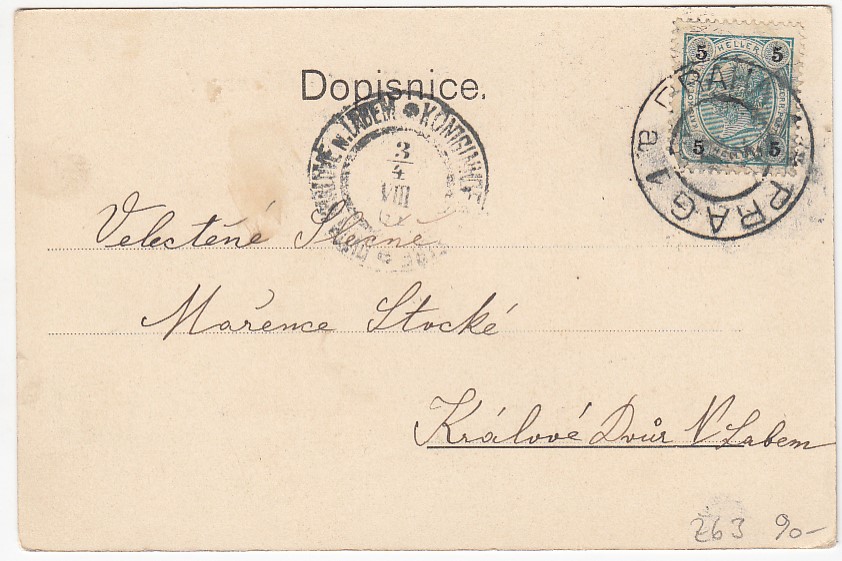 5 HELLER 5
5 5
Dopisnice.
PRAG 1
a
N. LABEM * KÖNIGINHOF
3/4
VIII
Velectěné Slečně
Mařence Stocké
Králové Dvůr N Labem
263 90-